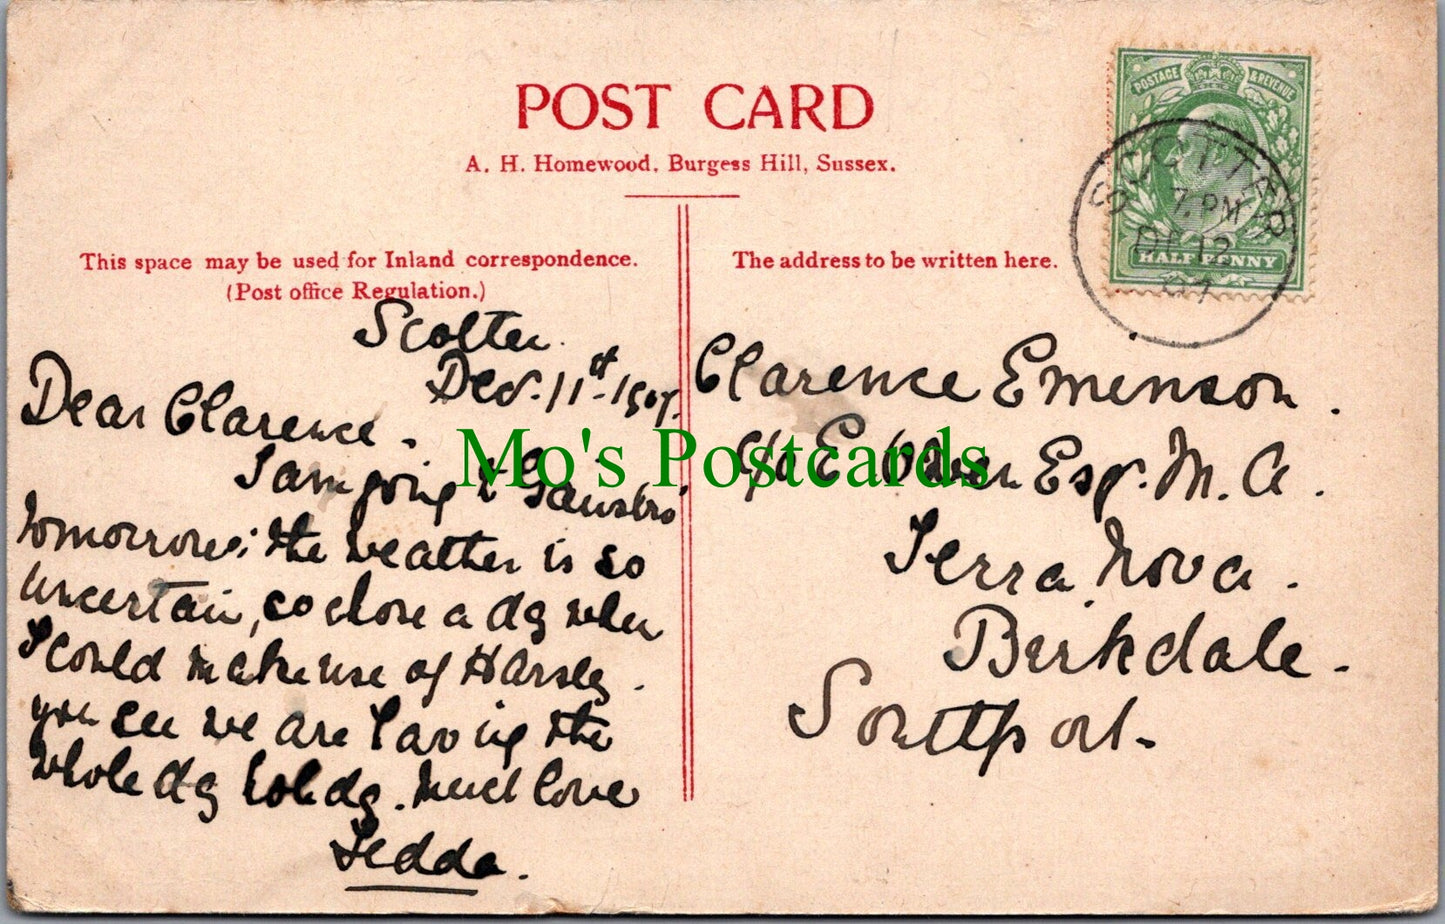 POST CARD
A. H. Homewood, Burgess Hill, Sussex.
This space may be used for Inland correspondence.
(Post office Regulation.)
The address to be written here.
POSTAGE & REVENUE
HALF PENNY
SCOTTER
7. PM
DE 12
07
Scotter.
Dec. 11th 1907.
Dear Clarence.
I am going to Gainsbro'
tomorrow; the weather is so
uncertain, so chose a day when
I could make use of Harsley.
you see we are having the
whole day holiday. Much love
Tedda.
Clarence Emenson.
C/o E. Esqr. M. A.
Terra Nova.
Birkdale.
Southport.
Mo's Postcards